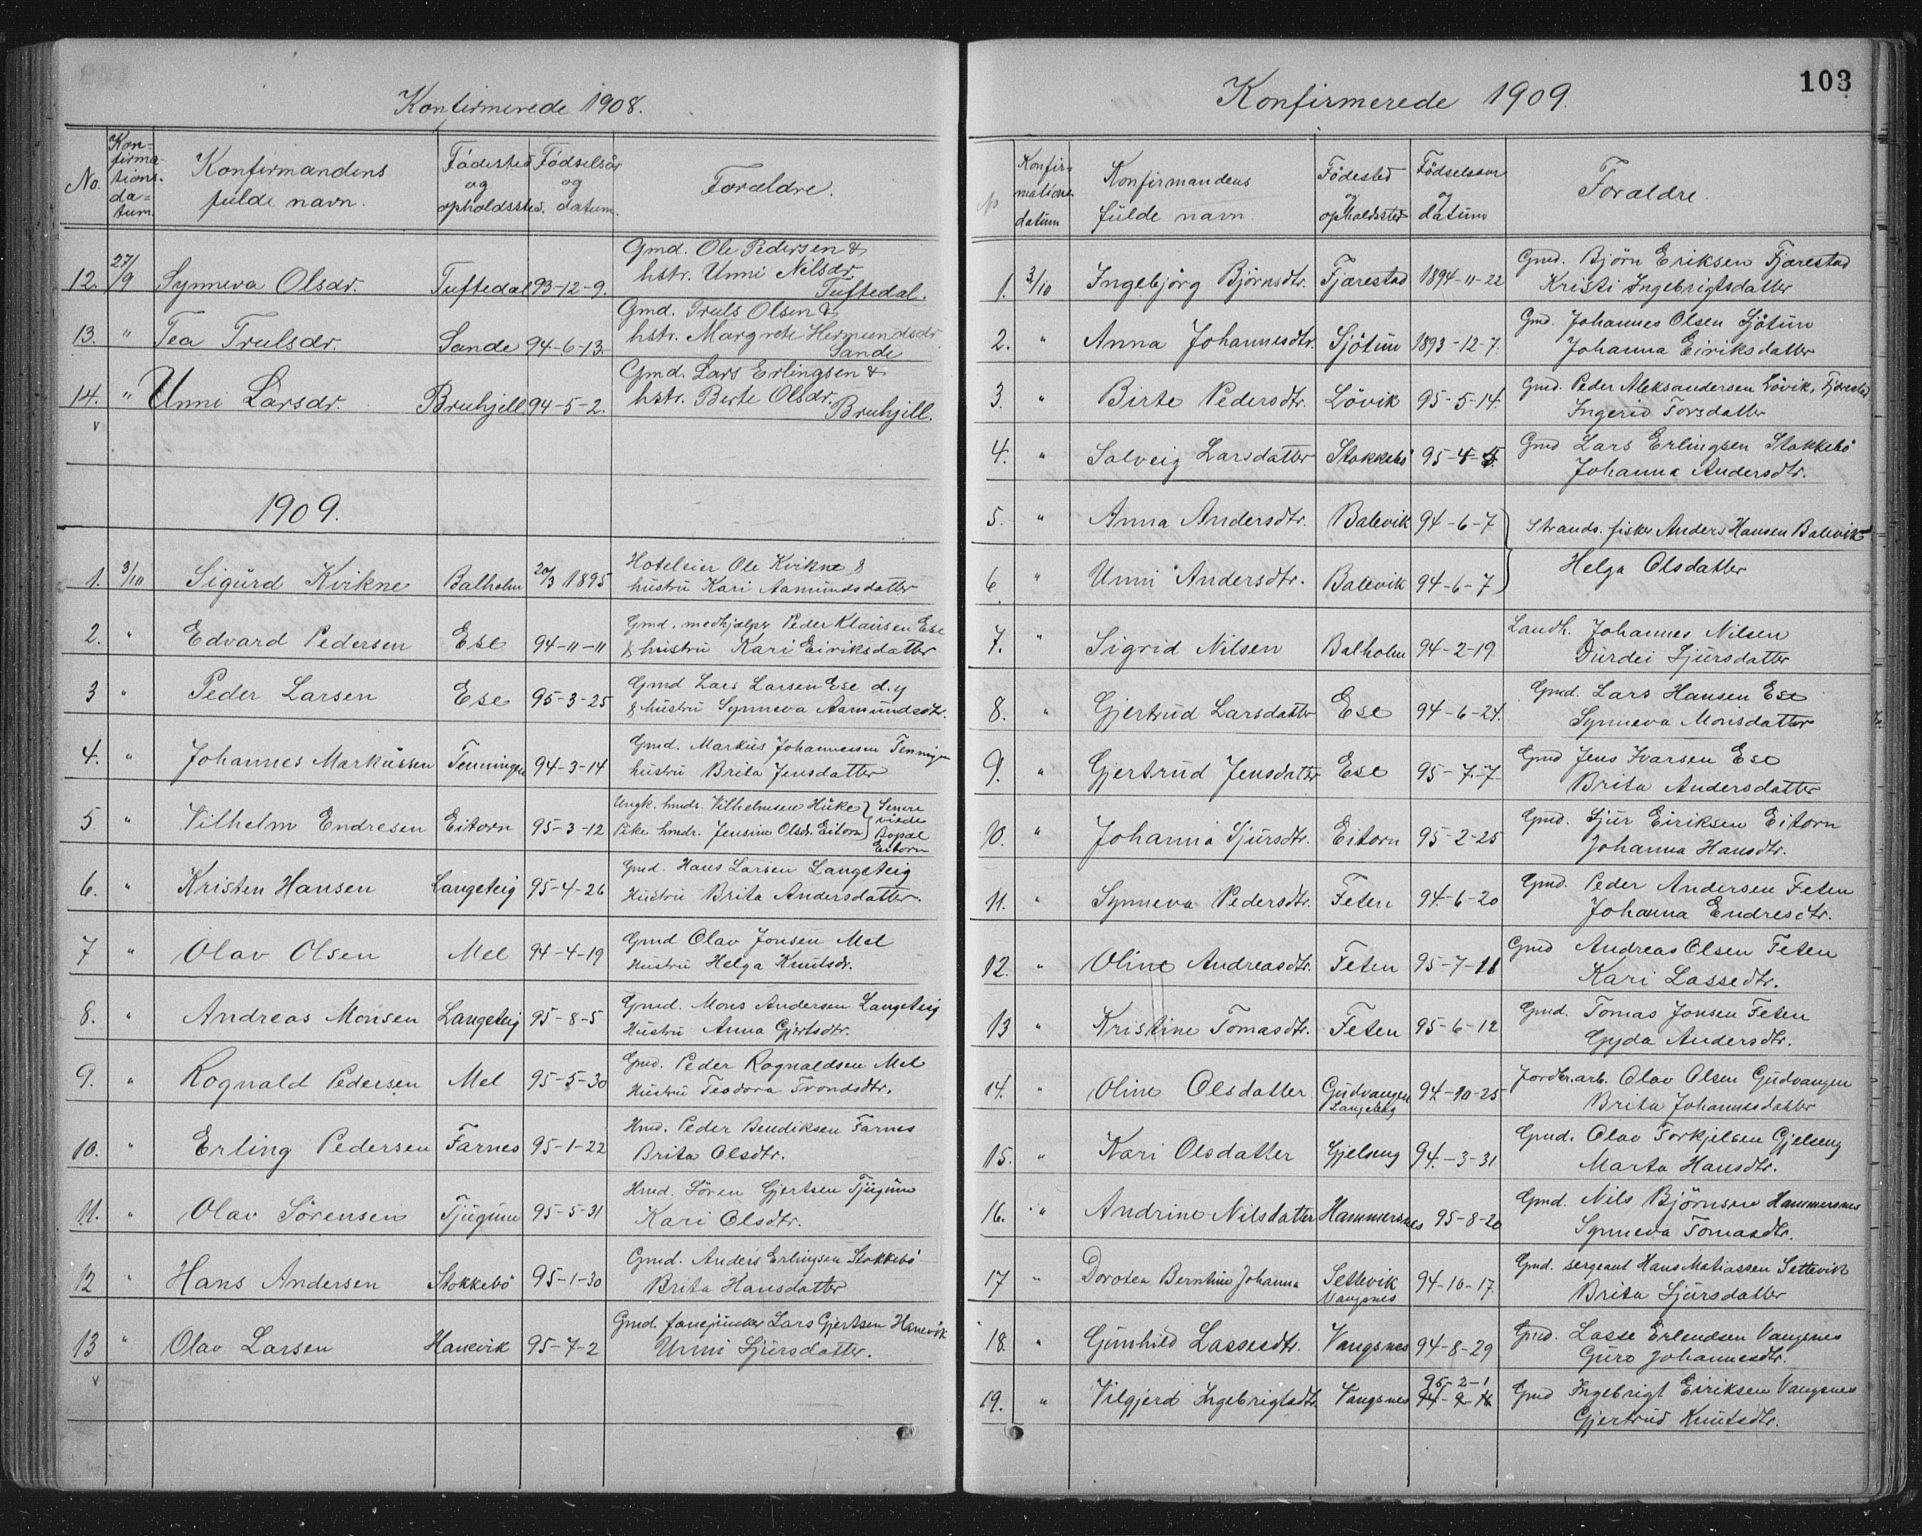 Konfirmerede 1908.
No. Konfirmationsdatum. Konfirmandens fulde navn. Fødested og opholdssted. Fødselsår og datum. Forældre.
12. 27/9 Synneva Olsdr. Tuftedal 93-12-9. Gmd. Ole Pedersen & hstr. Unni Nilsdr. Tuftedal.
13. " Tea Trulsdr. Sande 94-6-13. Gmd. Truls Olsen & hstr. Margrete Hermundsdr. Sande
14. " Unni Larsdr. Bruhjell 94-5-2. Gmd. Lars Erlingsen & hstr. Berte Olsdr. Bruhjell.
1909.
1. 3/10 Sigurd Kvikne Balholm 20/3 1895 Hoteleier Ole Kvikne & hustru Kari Aamundsdatter
2. " Edvard Pedersen Ese 94-11-11 Gmd. medhjælper Peder Klausen Ese & hustru Kari Eiriksdatter
3 " Peder Larsen Ese 95-3-25 Gmd Lars Larsen Ese d.y & hustru Synneva Aamundsdtr.
4. " Johannes Markussen Tenningen 94-3-14 Gmd. Markus Johannesen Tenningen hustru Brita Jensdatter
5 " Vilhelm Endresen Eitorn 95-3-12 Ungk. hmdr. Vilhelmsen Huke Pike hmdr. Jensine Olsdr. Eitorn } Senere viede Bopæl Eitorn
6. " Kristen Hansen Langeteig 95-4-26 Gmd. Hans Larsen Langeteig Hustru Brita Andersdatter.
7 " Olav Olsen Mel 94-4-19 Gmd Olav Jonsen Mel Hustru Helga Knutsdr.
8. " Andreas Monsen Langeteig 95-8-5 Gmd. Mons Andersen Langeteig Hustru Anna Gjertsdtr.
9. " Rognald Pedersen Mel 95-5-30 Gmd. Peder Rognaldsen Mel Hustru Teodora Trondsdtr.
10. " Erling Pedersen Farnes 95-1-22 Hmd. Peder Bendiksen Farnes Brita Olsdtr.
11. " Olav Sörensen Tjugum 95-5-31 Hmd. Sören Gjertsen Tjugum Kari Olsdtr.
12 " Hans Andersen Stokkebö 95-1-30 Gmd. Anders Erlingsen Stokkebö Brita Hansdatter
13 " Olav Larsen Hanevik 95-7-2 Gmd. fanejunker Lars Gjertsen Hanevik Unni Sjursdatter.
103
Konfirmerede 1909.
No Konfirmationsdatum Konfirmandens fulde navn. Födested og opholdssted Födselsaar og datum Foræld­re.
1. 3/10 Ingebjörg Björnsdtr. Fjærestad 1894-11-22 Gmd. Björn Eriksen Fjærestad Kristi Ingebrigtsdatter
2. " Anna Johannesdtr. Sjötun 1893-12-7. Gmd. Johannes Olsen Sjötun Johanna Eiriksdatter
3. " Birte Pedersdtr. Lövik 95-5-14. Gmd. Peder Aleksandersen Lövik, Fjærestad Ingerid Torsdatter
4. " Solveig Larsdatter Stokkebö 95-4- Gmd Lars Erlingsen Stokkebö Johanna Andersdtr.
5. " Anna Andersdtr. Balevik 94-6-7 } Strands. fisker Anders Hansen Balevik
6 " Unni Andersdtr. Balevik 94-6-7 } Helga Olsdatter
7. " Sigrid Nilsen Balholm 94-2-19 Landh. Johannes Nilsen Durdei Sjursdatter
8. " Gjertrud Larsdatter Ese 94-6-24. Gmd. Lars Hansen Ese Synneva Monsdatter
9. " Gjertrud Jensdatter Ese 95-7-7 Gmd Jens Ivarsen Ese Brita Andersdatter
10. " Johanna Sjursdtr. Eitorn 95-2-25 Gmd. Sjur Eiriksen Eitorn Johanna Hansdtr.
11. " Synneva Pedersdtr. Feten 94-6-20 Gmd. Peder Andersen Feten Johanna Endresdtr.
12. " Oline Andreasdtr. Feten 95-7-11 Gmd Andreas Olsen Feten Kari Lassedtr.
13 " Kristine Tomasdtr. Feten 95-6-12 Gmd. Tomas Jonsen Feten Gyda Andersdtr.
14. " Oline Olsdatter Gudvangen Langeteig 94-10-25 Jordbr.arb. Olav Olsen Gudvangen Brita Johannesdatter
15. " Kari Olsdatter Gjelseng 94-3-31 Gmd. Olav Torkjelsen Gjelseng Marta Hansdtr.
16. " Andrine Nilsdatter Hammersnes 95-8-20 Gmd. Nils Björnsen Hammersnes Synneva Tomasdtr.
17 " Dorotea Berntine Johanna Settevik Vangsnes 94-10-17. Gmd. sergeant Hans Matiassen Settevik Brita Sjursdatter
18. " Gunhild Lassesdtr. Vangsnes 94-8-29 Gmd. Lasse Erlendsen Vangsnes Guro Johannesdtr.
19. " Vilgjerd Ingebrigtsdtr. Vangsnes 95-2-1 Gmd Ingebrigt Eiriksen Vangsnes Gjertrud Knutsdtr.